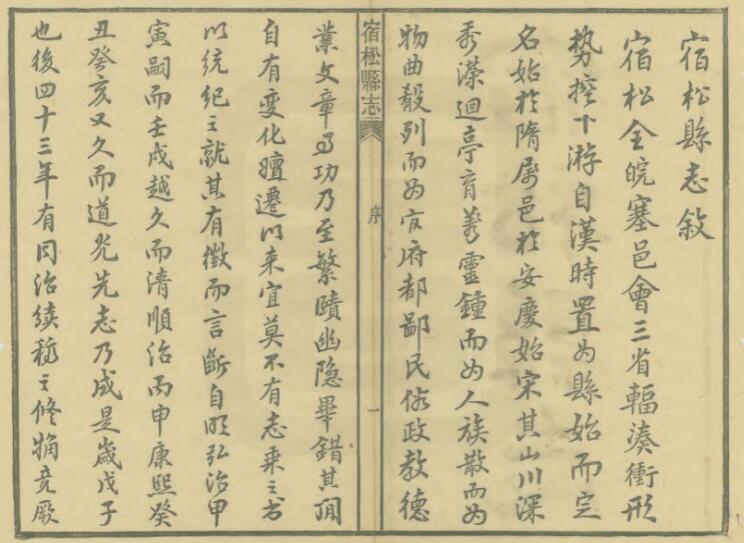 宿松縣志敘
宿松全皖塞邑會三省輻湊衝形
势控下游自漢時置为縣始而定
名始於隋屬邑於安慶始宋其山川深
秀濚迴亭育靈鍾而为人族散而为
物曲殽列而为官府都鄙民俗政教德
宿松縣志
序
一
業文章事功乃至繁賾幽隐畢錯其間
自有变化嬗遷以来宜莫不有志乘之书
以统纪之就其有徵而言斷自明弘治甲
寅嗣而壬戌越久而清順治丙申康熙癸
丑癸亥又久而道光先志乃成是歲戊子
也後四十三年有同治续稿之修稿竟厥